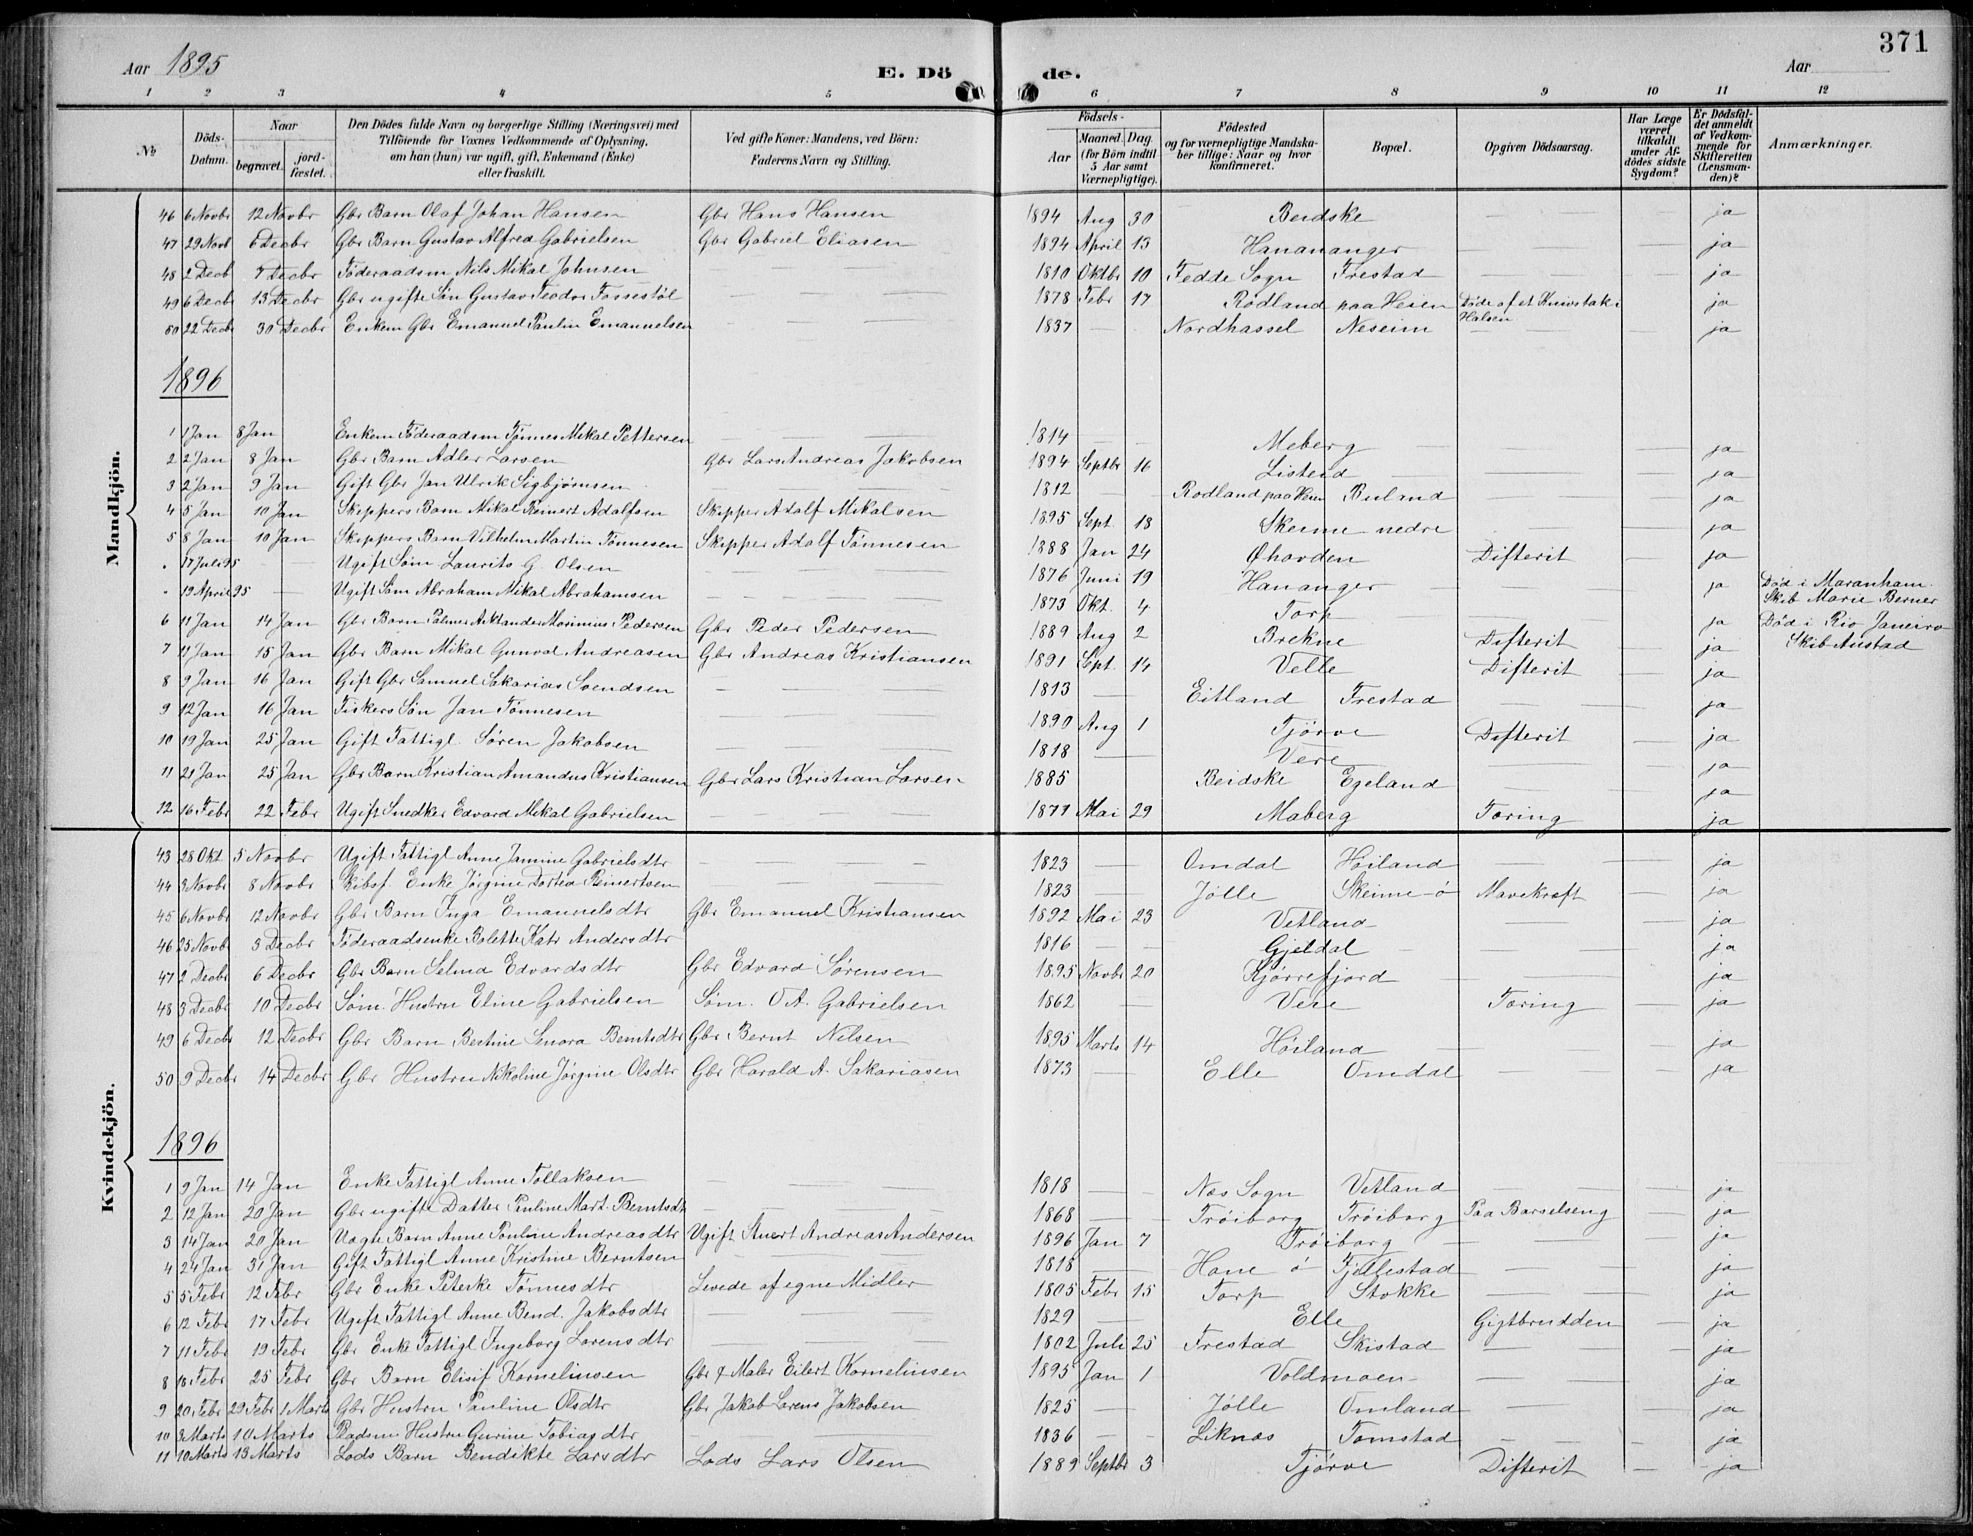 371
Aar 1895 E. Dö de. Aar
1 2 3 4 5 6 7 8 9 10 11 12
No Döds-Datum. Naar begravet. jord-fæstet. Den Dödes fulde Navn og borgerlige Stilling (Næringsvei) med Tilföiende for Voxnes Vedkommende af Oplysning, om han (hun) var ugift, gift, Enkemand (Enke) eller fraskilt. Ved gifte Koner: Mandens, ved Börn: Faderens Navn og Stilling. Födsels- Aar Maaned. Dag. (for Börn indtil 5 Aar samt Værnepligtige). Födested og for værnepligtige Mandskaber tillige: Naar og hvor konfirmeret. Bopæl. Opgiven Dödsaarsag. Har Læge været tilkaldt under Afdödes sidste Sygdom? Er Dödsfaldet anmeldt af Vedkommende for Skifteretten (Lensmanden)? Anmærkninger.
Mandkjön.
46 6 Novbr 12 Novbr Gbr Barn Olaf Johan Hansen Gbr Hans Hansen 1894 Aug 30 Beidske ja
47 29 Novb 6 Decbr Gbr Barn Gustav Alfred Gabrielsen Gbr Gabriel Eliasen 1894 April 13 Hanananger ja
48 2 Decb 7 Decbr Föderaadsm Nils Mikal Johnsen 1810 Oktbr 10 Fedde Sogn Frestad ja
49 6 Decb 13 Decbr Gbr ugifte Sön Gustav Teodor Fossestöl 1878 Febr 17 Rödland paa Heien Döde af et Knivstik i Halsen ja
50 22 Decb 30 Decbr Enkem Gbr Emanuel Paulin Emanuelsen 1837 Nordhassel Neseim ja
1896
1 1 Jan 8 Jan Enkem Föderaadsm Tönnes Mikal Pettersen 1814 Meberg ja
2 2 Jan 8 Jan Gbr Barn Adler Larsen Gbr Lars Andreas Jakobsen 1894 Septbr 16 Listeid ja
3 2 Jan 9 Jan Gift Gbr Jan Ulrik Sigbjörnsen 1812 Rodland paa Heien Buland ja
4 5 Jan 10 Jan Skippers Barn Mikal Reinert Adolfsen Skipper Adolf Mikalsen 1895 Sept 18 Skeime nedre ja
5 8 Jan 10 Jan Skippers Barn Vilhelm Martin Tönnesen Skipper Adolf Tönnesen 1888 Jan 24 Øhovden Difterit ja
" 17 Juli 95 Ugift Söm Laurits G. Olsen 1876 Juni 19 Hananger ja Död i Maranham. Skib Marie Berner
" 19 April 95 Ugift Söm Abraham Mikal Abrahamsen 1873 Okt. 4 Torp ja Död i Rio Janeiro Skib Austad
6 11 Jan 14 Jan Gbr Barn Palmer Aktander Morinius Pedersen Gbr Peder Pedersen 1889 Aug 2 Brekne Difterit ja
7 11 Jan 15 Jan Gbr Barn Mikal Gunvald Andreasen Gbr Andreas Kristiansen 1891 Sept 14 Velle Difterit ja
8 9 Jan 16 Jan Gift Gbr Samuel Sakarias Svendsen 1813 Eitland Frestad ja
9 12 Jan 16 Jan Fiskers Sön Jan Tönnesen 1890 Aug 1 Tjörve Difterit ja
10 19 Jan 25 Jan Gift Fattigl. Sören Jakobsen 1818 Vere ja
11 21 Jan 25 Jan Gbr Barn Kristian Amandus Kristiansen Gbr Lars Kristian Larsen 1885 Beidske Egeland ja
12 16 Febr 22 Febr Ugift Snedker Edvard Mikal Gabrielsen 1877 Mai 29 Maberg Tæring ja
Kvindekjön.
43 28 Okt 5 Novbr Ugift Fattigl Anne Jamine Gabrielsdtr 1823 Omdal Höiland ja
44 3 Novbr 8 Novbr Skibsf. Enke Jörgine Dortea Reinertsen 1823 Jölle Skeime ö Mavekræft ja
45 6 Novbr 12 Novbr Gbr Barn Inga Emanuelsdtr Gbr Emanuel Kristiansen 1892 Mai 23 Vetland ja
46 25 Novb 3 Decbr Föderaadsenke Bolette Katr Andersdtr 1816 Gjeldal ja
47 2 Decbr 6 Decbr Gbr Barn Selma Edvardsdtr Gbr Edvard Sörensen 1895 Novbr 20 Kjörrefjord ja
48 3 Decbr 10 Decbr Söm. Hustru Eline Gabrielsen Söm. O A. Gabrielsen 1862 Vere Tæring ja
49 6 Decbr 12 Decbr Gbr Barn Bertine Lenora Berntsdtr Gbr Bernt Nilsen 1895 Marts 14 Höiland ja
50 9 Decbr 14 Decbr Gbr Hustru Nikoline Jörgine Olsdtr Gbr Harald A. Sakariasen 1873 Elle Omdal ja
1896
1 9 Jan 14 Jan Enke Fattigl Anne Tollaksen 1818 Næs Sogn Vetland ja
2 12 Jan 20 Jan Gbr ugifte Datter Pauline Mart. Berntsdt 1868 Tröiborg Tröiborg Paa Barselseng ja
3 14 Jan 20 Jan Uægte Barn Anne Pauline Andreasdtr Ugift Anert Andreas Andersen 1896 Jan 7 Tröiborg ja
4 24 Jan 31 Jan Gift Fattigl Anne Kristine Berntsen 1818 Hane ö Fjellestad ja
5 5 Febr 12 Febr Gbr Enke Peterke Tönnesdtr Levede af egne Midler 1805 Febr 15 Torp Stokke ja
6 12 Febr 17 Febr Ugift Fattigl Anne Bend. Jakobsdtr 1829 Elle Gigtbrudden ja
7 11 Febr 19 Febr Gbr Enke Fattigl Ingeborg Lorensdtr 1802 Juli 25 Frestad Skistad ja
8 18 Febr 25 Febr Gbr Barn Elisif Kornelinsen Gbr & Maler Eilert Kornelinsen 1895 Jan 1 Voldmoen ja
9 20 Febr 29 Febr 1 Marts Gbr Hustru Pauline Olsdtr Gbr Jakob Lorens Jakobsen 1825 Jölle Omland ja
10 3 Marts 10 Marts Pladsm Hustru Gurine Tobiasdtr 1836 Liknæs Tomstad ja
11 10 Marts 13 Marts Lods Barn Bendikte Larsdtr Lods Lars Olsen 1889 Septbr 3 Tjörve Difterit ja